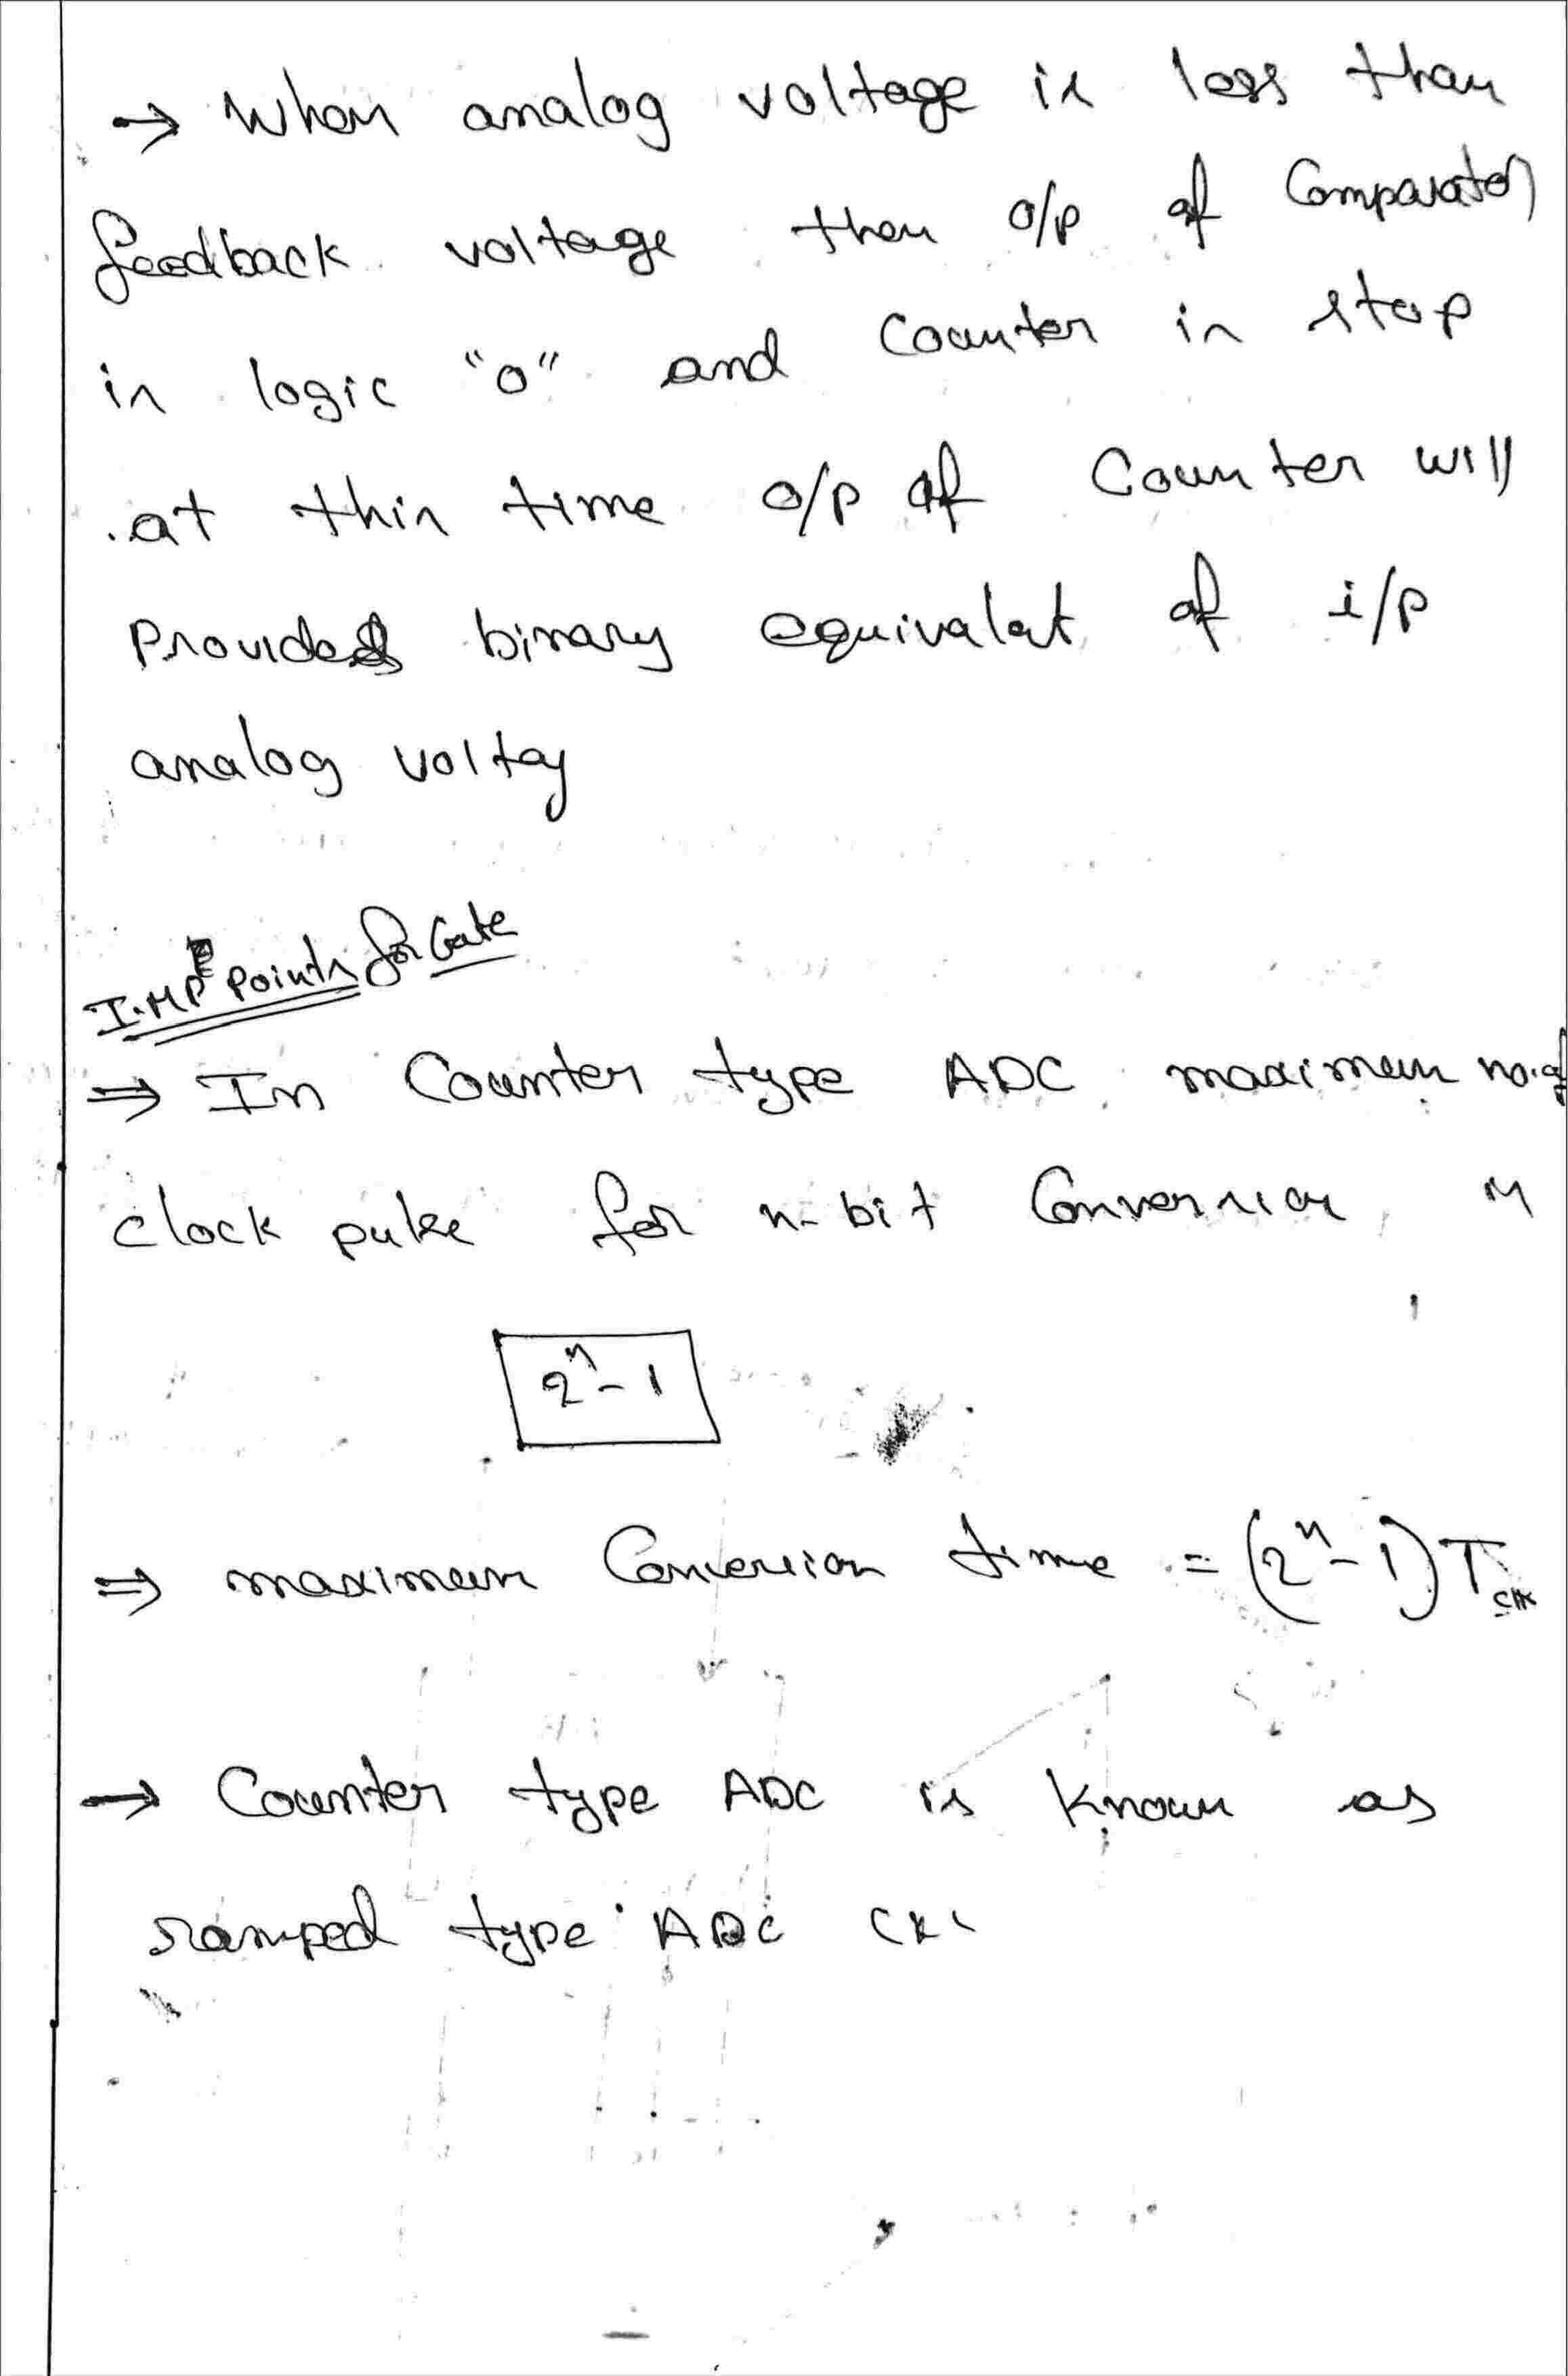 → When analog voltage is less than
feedback voltage then o/p of Comparator
is logic "0" and Counter is stop
at this time o/p of Counter will
Provides binary equivalat of i/p
analog voltag
I.MP Points for Gate
⇒ In Counter type ADC maximum no.of
clock pulse for n-bit Conversion is
2ⁿ-1
⇒ maximum Conversion time = (2ⁿ-1)T_clk
→ Counter type ADC is known as
ramped type ADC CKt